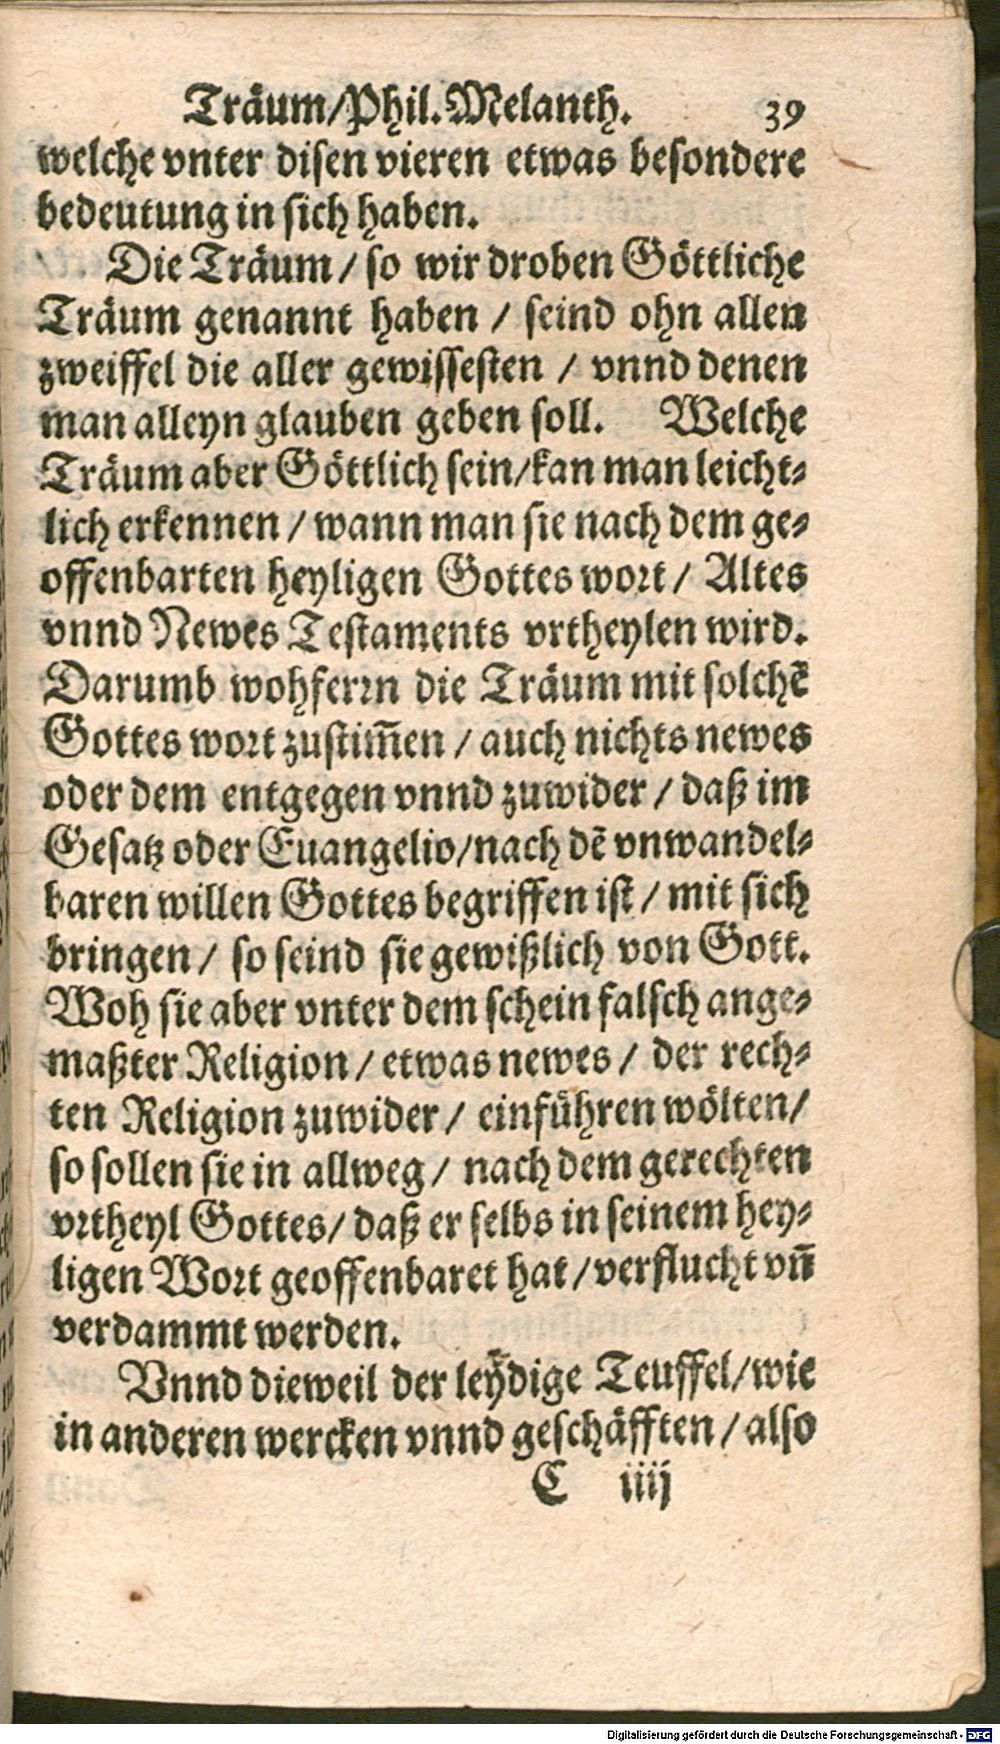 Träum/Phil. Melanth. 39
welche vnter disen vieren etwas besondere
bedeutung in sich haben.
Die Träum / so wir droben Göttliche
Träum genannt haben / seind ohn allen
zweiffel die aller gewissesten / vnnd denen
man alleyn glauben geben soll. Welche
Träum aber Göttlich sein/kan man leicht⸗
lich erkennen / wann man sie nach dem ge⸗
offenbarten heyligen Gottes wort / Altes
vnnd Newes Testaments vrtheylen wird.
Darumb wohferrn die Träum mit solchẽ
Gottes wort zustim̃en / auch nichts newes
oder dem entgegen vnnd zuwider / daß im
Gesatz oder Euangelio/nach dẽ vnwandel⸗
baren willen Gottes begriffen ist / mit sich
bringen / so seind sie gewißlich von Gott.
Woh sie aber vnter dem schein falsch ange⸗
maßter Religion / etwas newes / der rech⸗
ten Religion zuwider / einführen wölten/
so sollen sie in allweg / nach dem gerechten
vrtheyl Gottes/ daß er selbs in seinem hey⸗
ligen Wort geoffenbaret hat / verflucht vñ
verdammt werden.
Vnnd dieweil der leydige Teuffel/wie
in anderen wercken vnnd geschäfften / also
C iiij
Digitalisierung gefördert durch die Deutsche Forschungsgemeinschaft - DFG